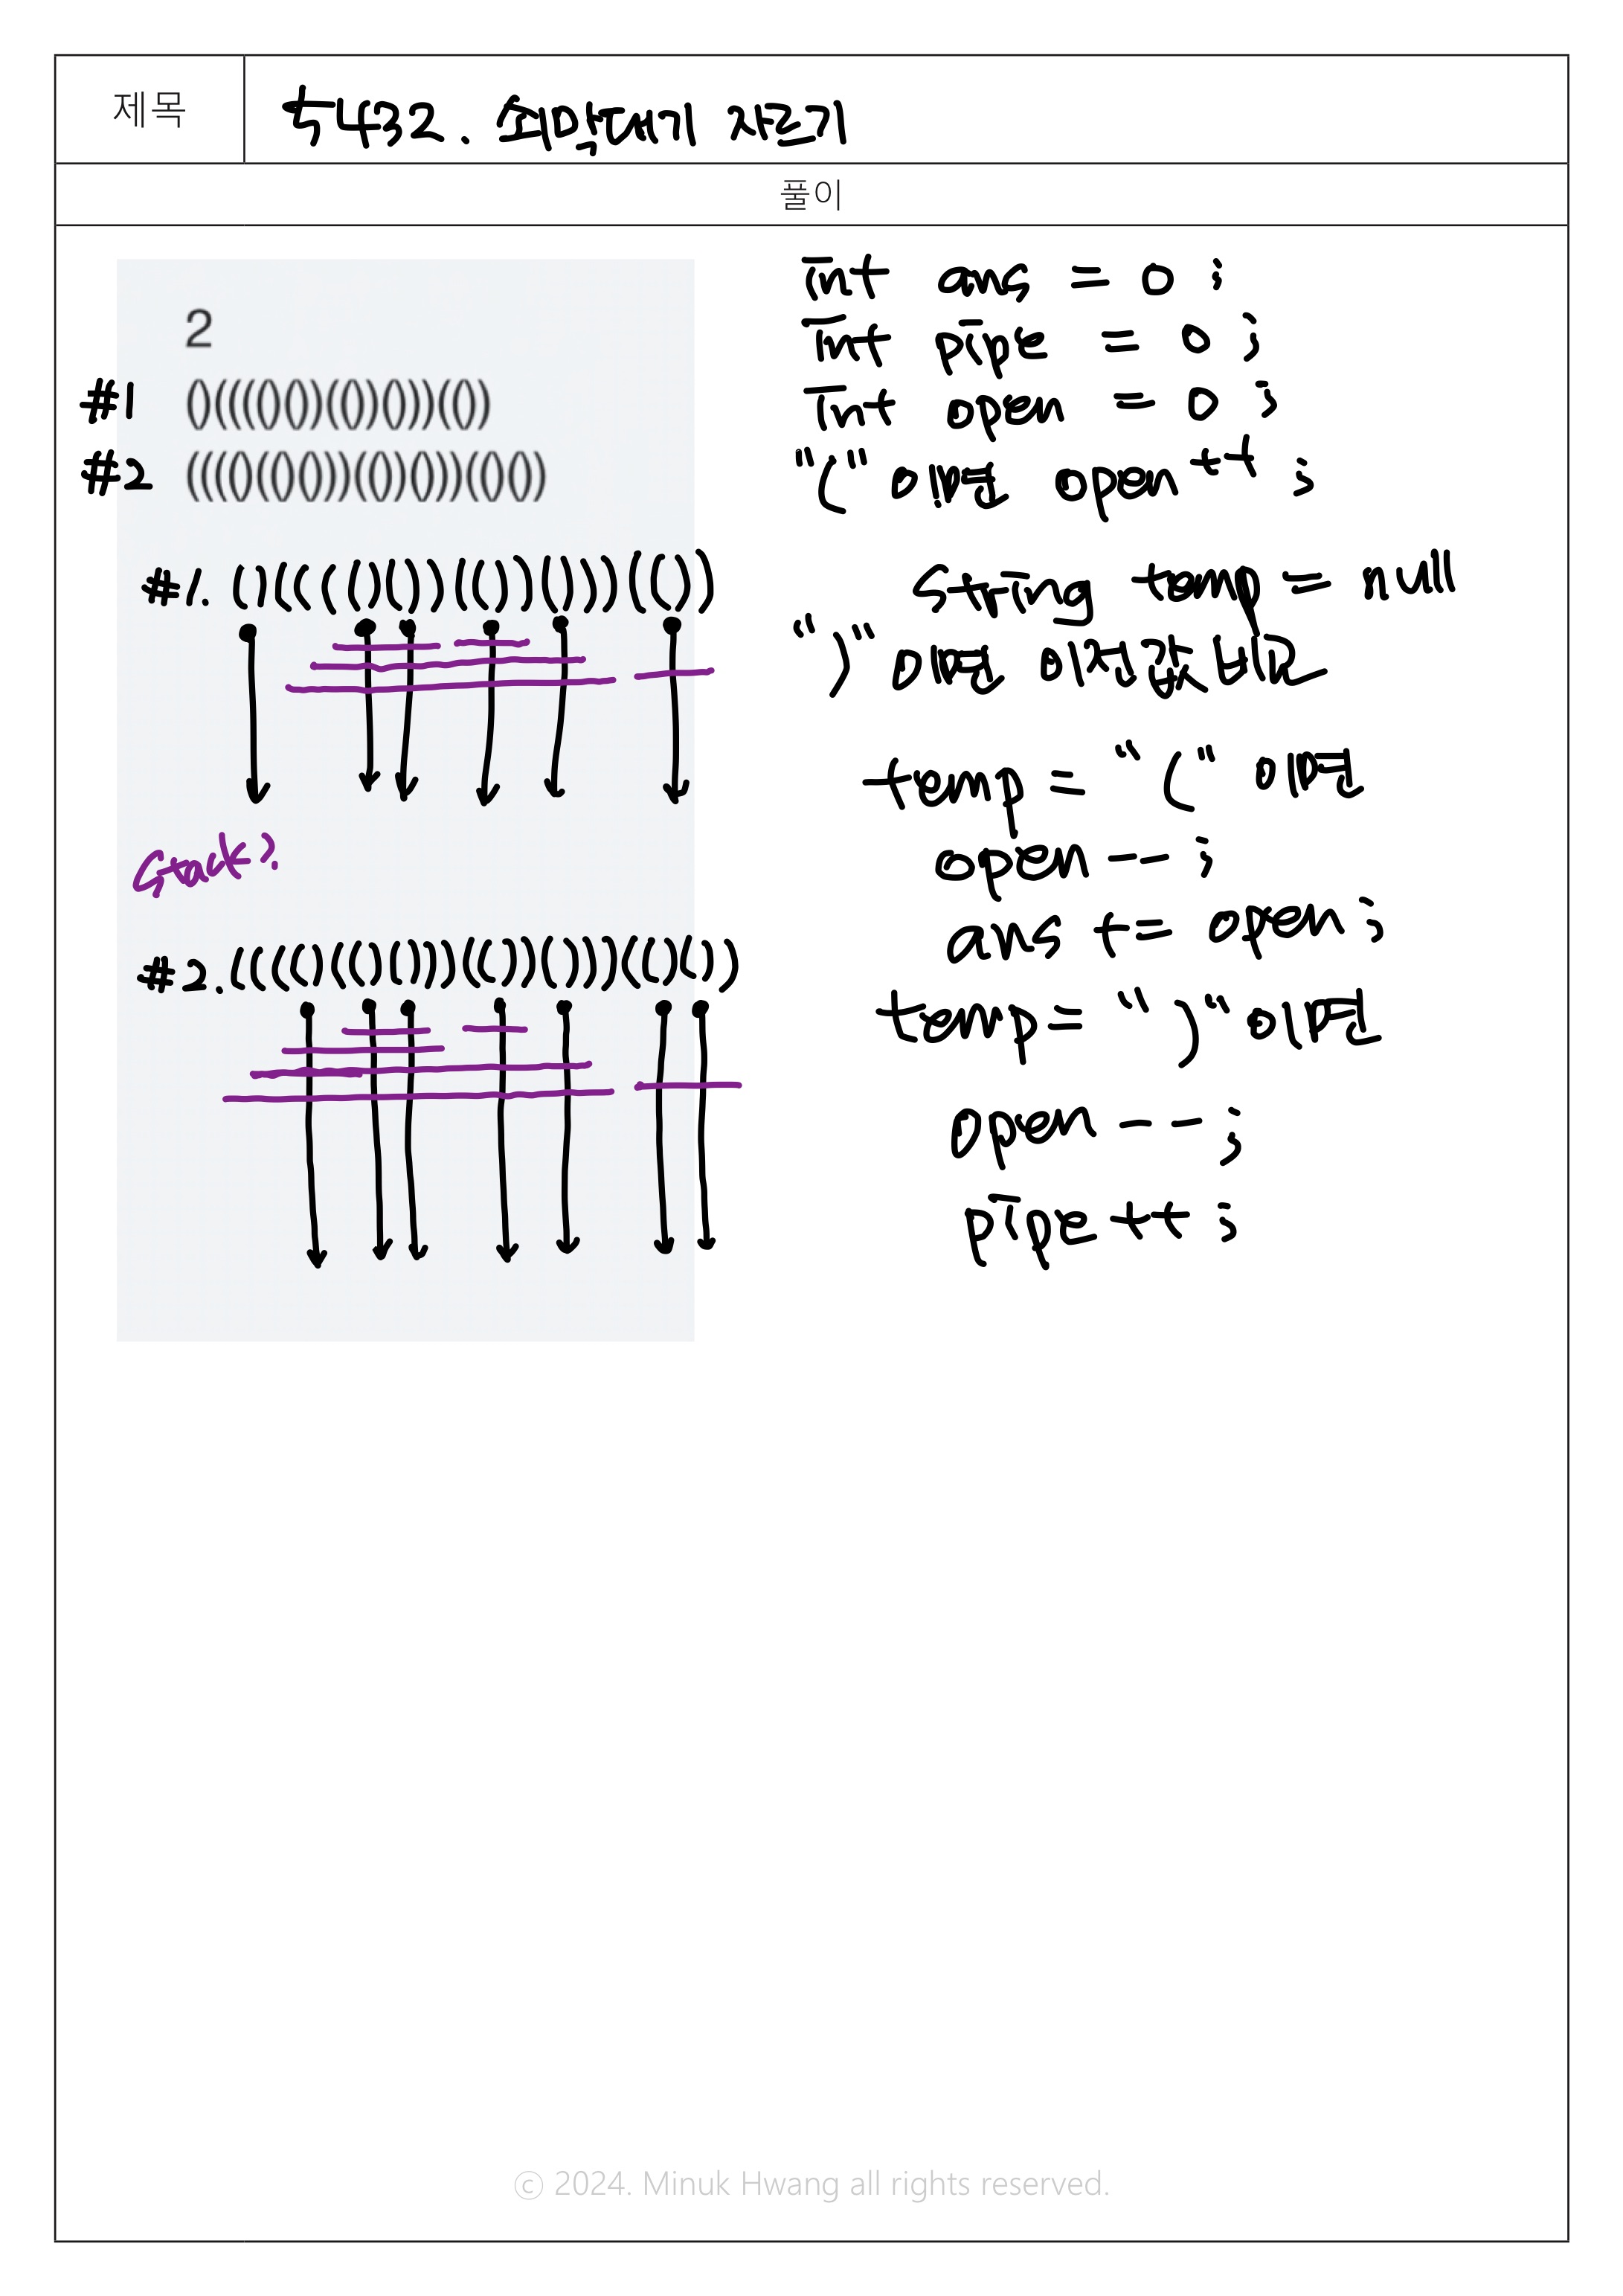 제목
5432. 쇠막대기 자르기
풀이
2
#1 ()(((()())(())()))(())
#2 (((()(()()))(())()))(()())
#1. ()(((()())(())()))(())
Stack?
#2. (((()(()()))(())()))(()())
int ans = 0 ;
int pipe = 0 ;
int open = 0 ;
"(" 이면 open++ ;
String temp = null
")" 이면 이전값 비교
temp = "(" 이면
open -- ;
ans += open ;
temp = ")" 이면
open -- ;
pipe ++ ;
© 2024. Minuk Hwang all rights reserved.